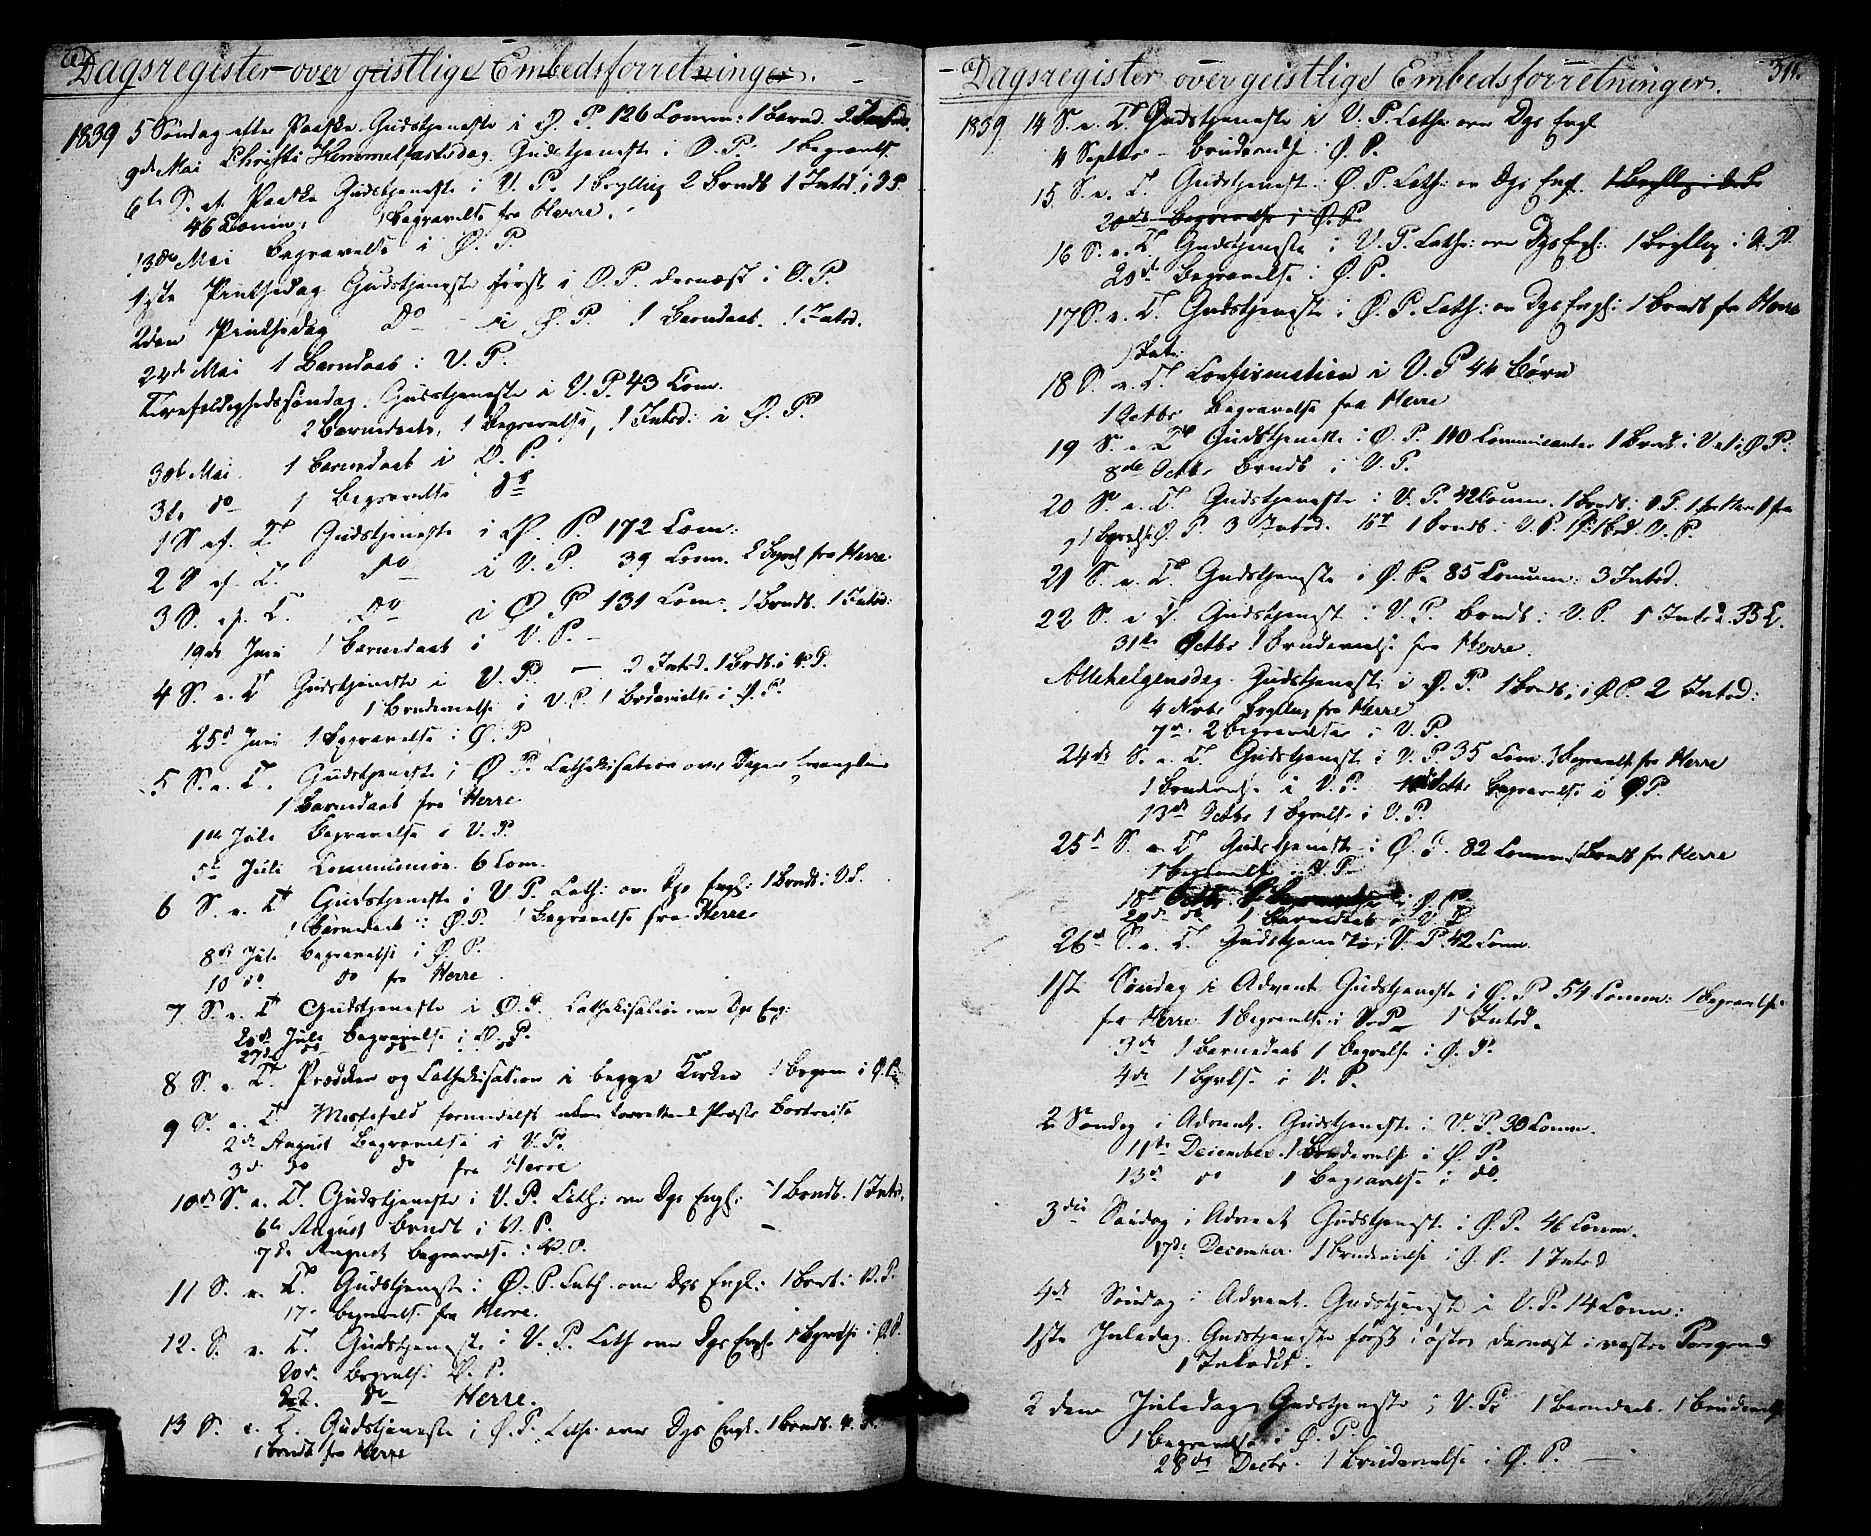 Dagsregister over geistlige Embedsforretninger.
1839 5 Søndag efter Paaske Gudstjeneste i Ø. P. 126 Comm: 1 Barned. 2 Introd.
9de Mai Christi Himmelfartsdag. Gudstjeneste i Ø. P. 1 Begravels.
6te S. ef. Paaske Gudstjeneste i V. P. 1 Bryllup 2 Brndb 1 Introd. i
46 Comm: 1 Begravelse fra Herre.
13de Mai Begravelse i Ø. P.
1ste Pintsedag Gudstjeneste først i Ø. P. dernæst i
2den Pintsedag Do i Ø. P. 1 Barnedaab. 1 Introd.
24de Mai 1 Barnedaab i V. P.
Trefoldighedssøndag. Gudstjeneste i V. P. 43 Com.
2 Barnedaab, 1 Begravelse, 1 Introd: i Ø. P.
30te Mai 1 Barnedaab i Ø. P.
31. do 1 Begravelse do
1 S. ef. T. Gudstjeneste i Ø. P. 172 Com:
2 S. ef. T. do i V. P. 39 Com. 2 Begrvls fra Herre
3 S. ef. T. do i Ø. P. 131 Com. 1 Brndb. 1 Introd:
19de Juni 1 Barnedaab i V. P.
4 S. e. T. Gudstjeneste i V. P. — 2 Introd. 1 Brdb. i V. P.
1 Brudevielse i V. P. 1 Brudevielse i Ø. P.
25de Juni 1 Begravelse i Ø. P
5 S. e. T. Gudstjeneste i Ø. P. Cathekisation over Dagens Evangelium
1 Barnedaab fra Herre
1ste Juli Begravelse i V. P.
5te Juli Communion 6 Com.
6 S. e. T. Gudstjeneste i V. P. Cath: ov. Dgs Engl: 1 Brndb: i V. P.
1 Barnedaab i Ø. P. 1 Begravelse fra Herre
8de Juli Begravelse i Ø. P.
10 do do fra Herre
7 S. e. T. Gudstjeneste i Ø. P. Cathekisation over Dgs Eng:
20de Juli Begravelse i Ø. P.
27de do do
8 S. e. T. Prædiken og Cathekisation i begge Kirker 1 Begrav i Ø. P.
9 S. e. T. Messefald formedelst Præsts Bortreise
2de August Begravelse i V. P.
3de do do fra Herre
10de S. e. T. Gudstjeneste i V. P. Cath: ov Dgs Engl: 1 Brndb. 1 Introd.
6te August Brndb i V. P.
7de August Begravelse i V. P.
11 S. e. T. Gudstjeneste i Ø. P. Cath. over Dgs Engl: 1 Brndb: i V. P.
17. Begravelse fra Herre.
12. S. e. T. Gudstjeneste i V. P. Cath over Dgs Engl. 1 Bgrvlse i Ø. P.
20de Begravelse Ø. P.
22. do Herre.
13 S. e. T. Gudstjeneste i Ø. P. Cath: over Dgs Engl. 1 Brndb. V. P.
1 Brndb fra Herre
Dagsregister over geistlige Embedsforretninger.
311.
1839 14 S. e. T. Gudstjeneste i V. P. Cathe over Dgs Engl
4 Septbr — Brudevielse i Ø. P.
15 S. e. T. Gudstjeneste i Ø. P. Cath: ov Dgs Engl. 1 Bryllup i Ø. P.
20de Begravelse i Ø. P.
16 S. e. T. Gudstjeneste i V. P. Cathe: over Dgs Engl: 1 Bryllup i V. P.
20de Begravelse i Ø. P.
17 S. e. T. Gudstjeneste i Ø. P. Cath: ov Dgs Engl: 1 Brndb fra Herre
1 Intr.
18 S. e. T. Confirmation i V. P 44 Børn
1 Octbr Begravelse fra Herre
19 S. e. T. Gudstjeneste i Ø. P. 110 Communicanter 1 Brndb i V. P. 1 i Ø. P.
8de Octbr Brndb i V. P.
20 S. e. T. Gudstjeneste i V. P. 42 Comm. 1 Brndb i Ø. P. 1 fra Herre
1 Bgrvlse Ø. P. 3 Introd. 16de 1 Brndb: V. P.
21 S. e. T. Gudstjeneste i Ø. P. 85 Comm: 3 Introd.
22 S. e. T. Gudstjeneste i V. P. Brndb: V. P. 1 Introd. 33 C.
31te Octbr 1 Brudevielse fra Herre.
Allehelgensdag. Gudstjeneste i Ø. P. 1 Brndb: i Ø. P. 2 Introd:
4 Novbr Bryllup fra Herre
7de. 2 Begravelser i V. P.
24de S. e. T. Gudstjeneste i V. P. 35 Com. 1 Begravelse fra Herre
1 Brudevielse i V. P. Octbr Begravelse i Ø. P.
13de Octbr 1 Bgrvlse i V. P.
25de S. e. T. Gudstjeneste i Ø. P. 82 Comm: 1 Brndb fra Herre
1 Begravelse i V. P.
18de Octbr i Ø. P.
20de do 1 Barnedaab i V. P.
26de S. e. T. Gudstjeneste i V. P. 42 Comm.
1ste Søndag i Advent Gudstjeneste i Ø. P. 54 Comm: 1 Begravelse
fra Herre 1 Begravelse i V. P. 1 Introd.
3de 1 Barnedaab 1 Begravelse i Ø. P.
4de 1 Bgrvlse i V. P.
2 Søndag i Advent. Gudstjeneste i V. P. 30 Comm.
11te December 1 Brudevielse i Ø. P.
13de do 1 Begravelse i do.
3die Søndag i Advent Gudstjeneste i Ø. P. 46 Comm.
17de December 1 Brudevielse i Ø. P. 1 Introd
4de Søndag i Advent. Gudstjeneste i V. P. 14 Comm:
1ste Juledag. Gudstjeneste først i østre dernæst i vestre Porsgrund
1 Introd.
2den Juledag Gudstjeneste i V. P. 1 Barnedaab. 1 Brudevielse
1 Begravelse i Ø. P.
28de Decbr. 1 Brudevielse i Ø. P. —